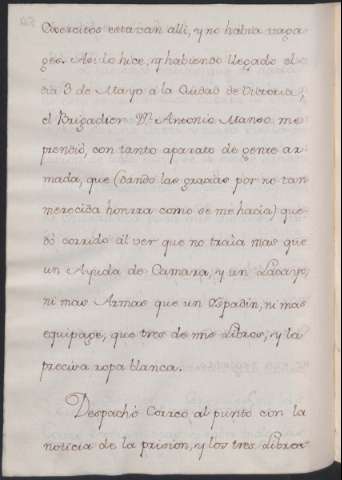 Exercitos estavan alli, y no havia baga-
ges. Asi lo hice, y habiendo llegado el
dia 3 de Mayo à la Ciudad de Victoria,
el Brigadier Dn. Antonio Manso me
prendió, con tanto aparato de gente ar-
mada, que (dando las gracias por no tan
merecida honrra como se me hacia) que-
dó corrido al ver que no traìa mas que
un Ayuda de Camara, y un Lacayo,
ni mas Armas que un Espadin, ni mas
equipage, que tres de mis Libros, y la
precisa ropa blanca.
Despachó Correo al punto con la
noticia de la prision, y los tres Libros